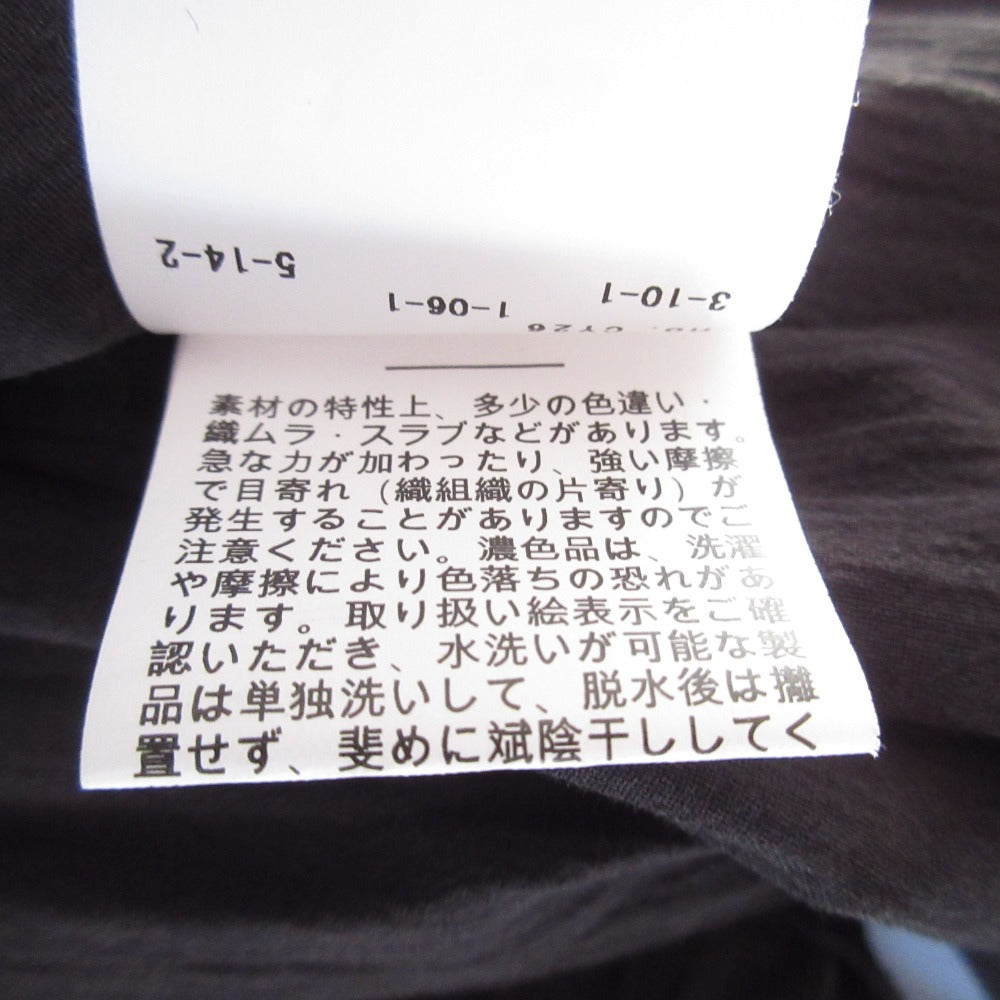 5-14-2
1-06-1
3-10-1
素材の特性上、多少の色違い・
織ムラ・スラブなどがあります。
急な力が加わったり、強い摩擦
で目寄れ（織組織の片寄り）が
発生することがありますのでご
注意ください。濃色品は、洗濯
や摩擦により色落ちの恐れがあ
ります。取り扱い絵表示をご確
認いただき、水洗いが可能な製
品は単独洗いして、脱水後は
置せず、めに陰干ししてく